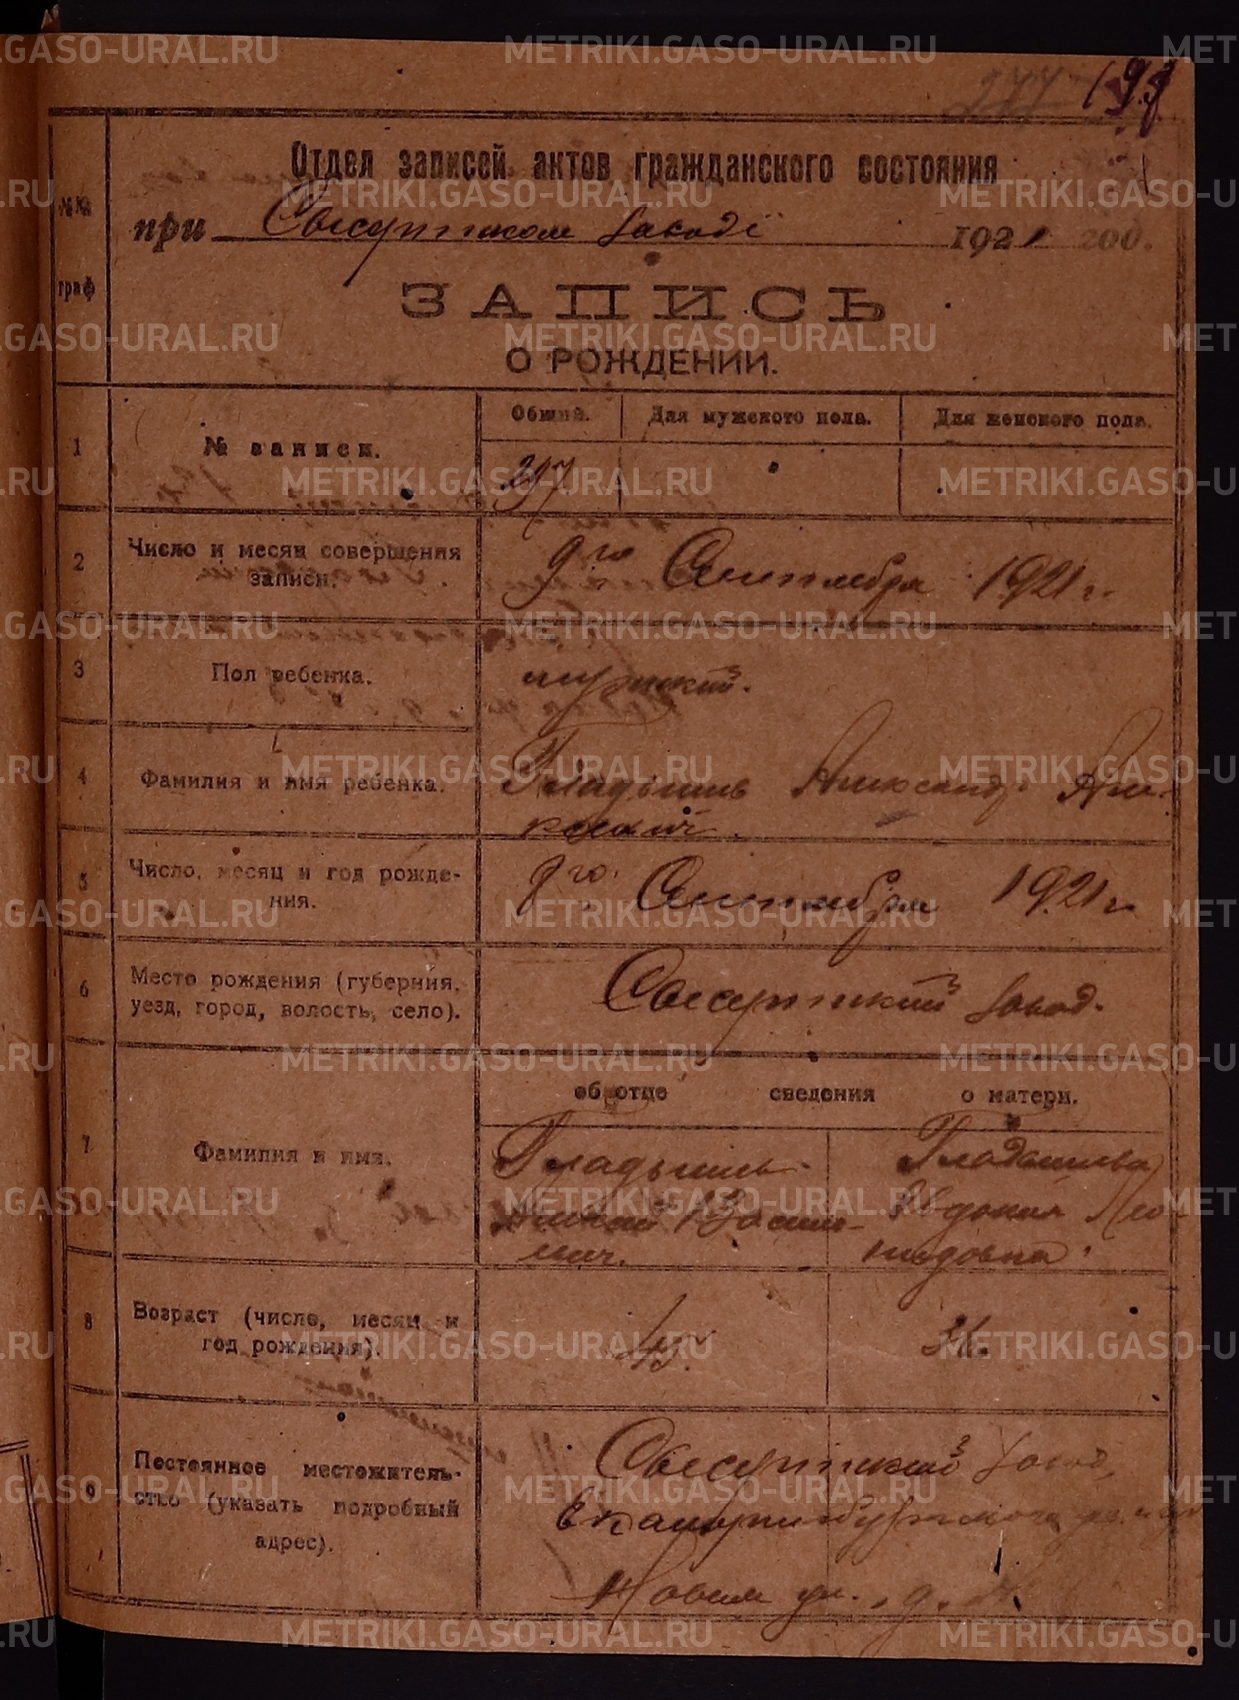 277 193
Отдел записей актов гражданского состояния
№№ граф
при Сысертском заводе 1921 год.
ЗАПИСЬ
О РОЖДЕНИИ.
Общий. Для мужского пола. Для женского пола.
1 № записи. 297
2 Число и месяц совершения
записи.
9го Сентября 1921 г.
3 Пол ребенка. мужской.
4 Фамилия и имя ребенка. Гладышев Александр
5 Число, месяц и год рожде-
ния.
го Сентября 1921 г.
6 Место рождения (губерния,
уезд, город, волость, село).
Сысертский завод.
об отце сведения о матери.
7 Фамилия и имя.
Гладышев Гладышева
Василь- Евдокия Лео-
евич. нидовна
8 Возраст (число, месяц и
год рождения).
45.
9 Постоянное местожитель-
ство (указать подробный
адрес).
Сысертский завод,
Екатеринбургского
Новая ул., д.
METRIKI.GASO-URAL.RU